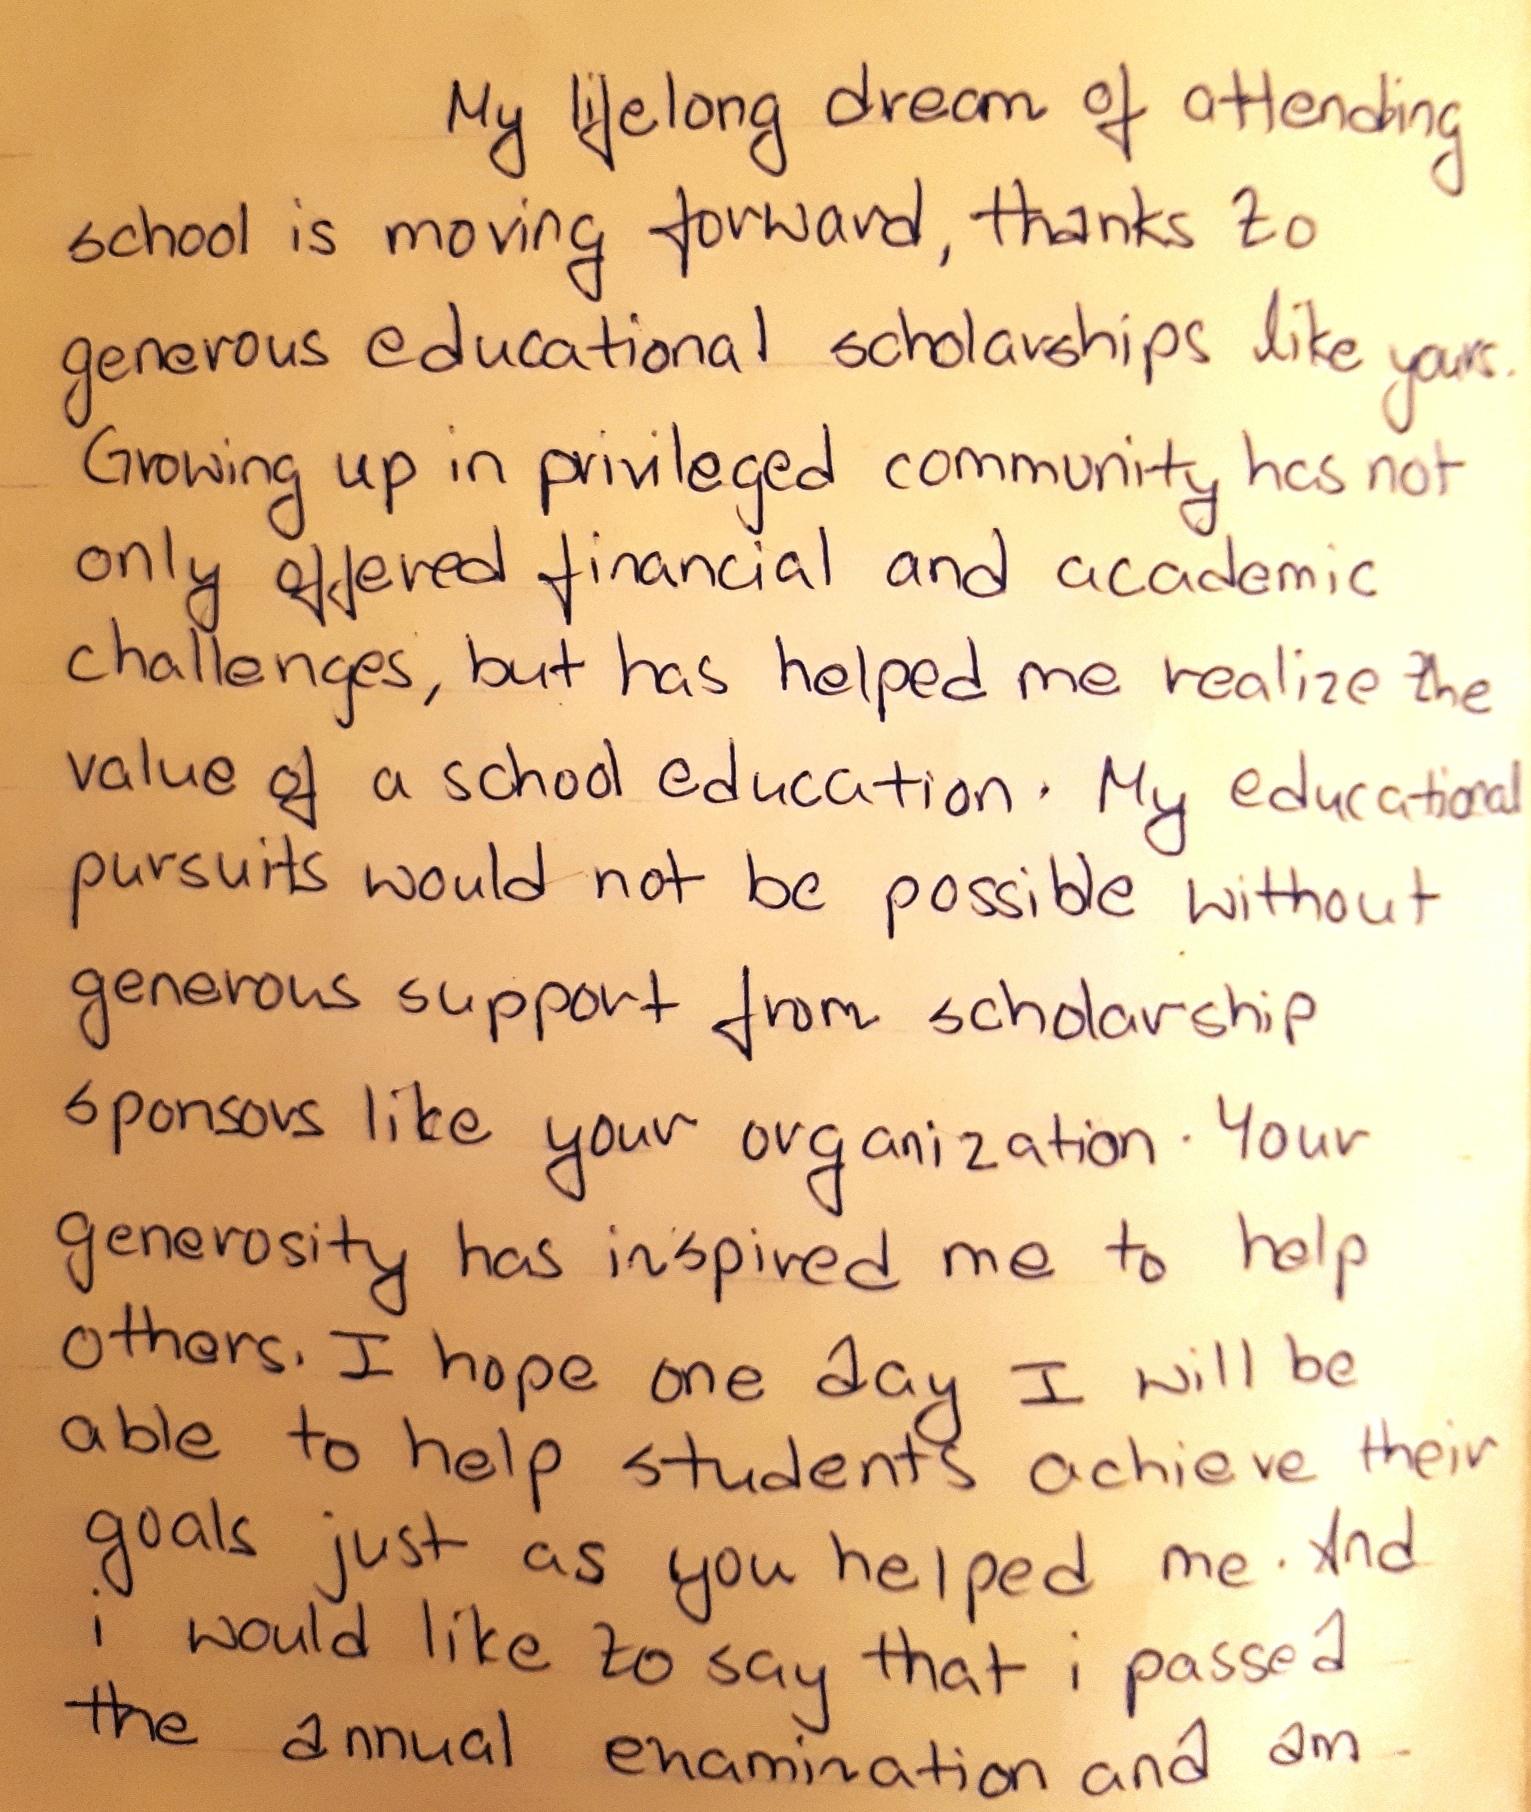 My lifelong dream of attending
school is moving forward, thanks to
generous educational scholarships like yours.
Growing up in privileged community has not
only offered financial and academic
challenges, but has helped me realize the
value of a school education. My educational
pursuits would not be possible without
generous support from scholarship
sponsors like your organization. Your
generosity has inspired me to help
others. I hope one day I will be
able to help students achieve their
goals just as you helped me. And
i would like to say that i passed
the annual enamination and am